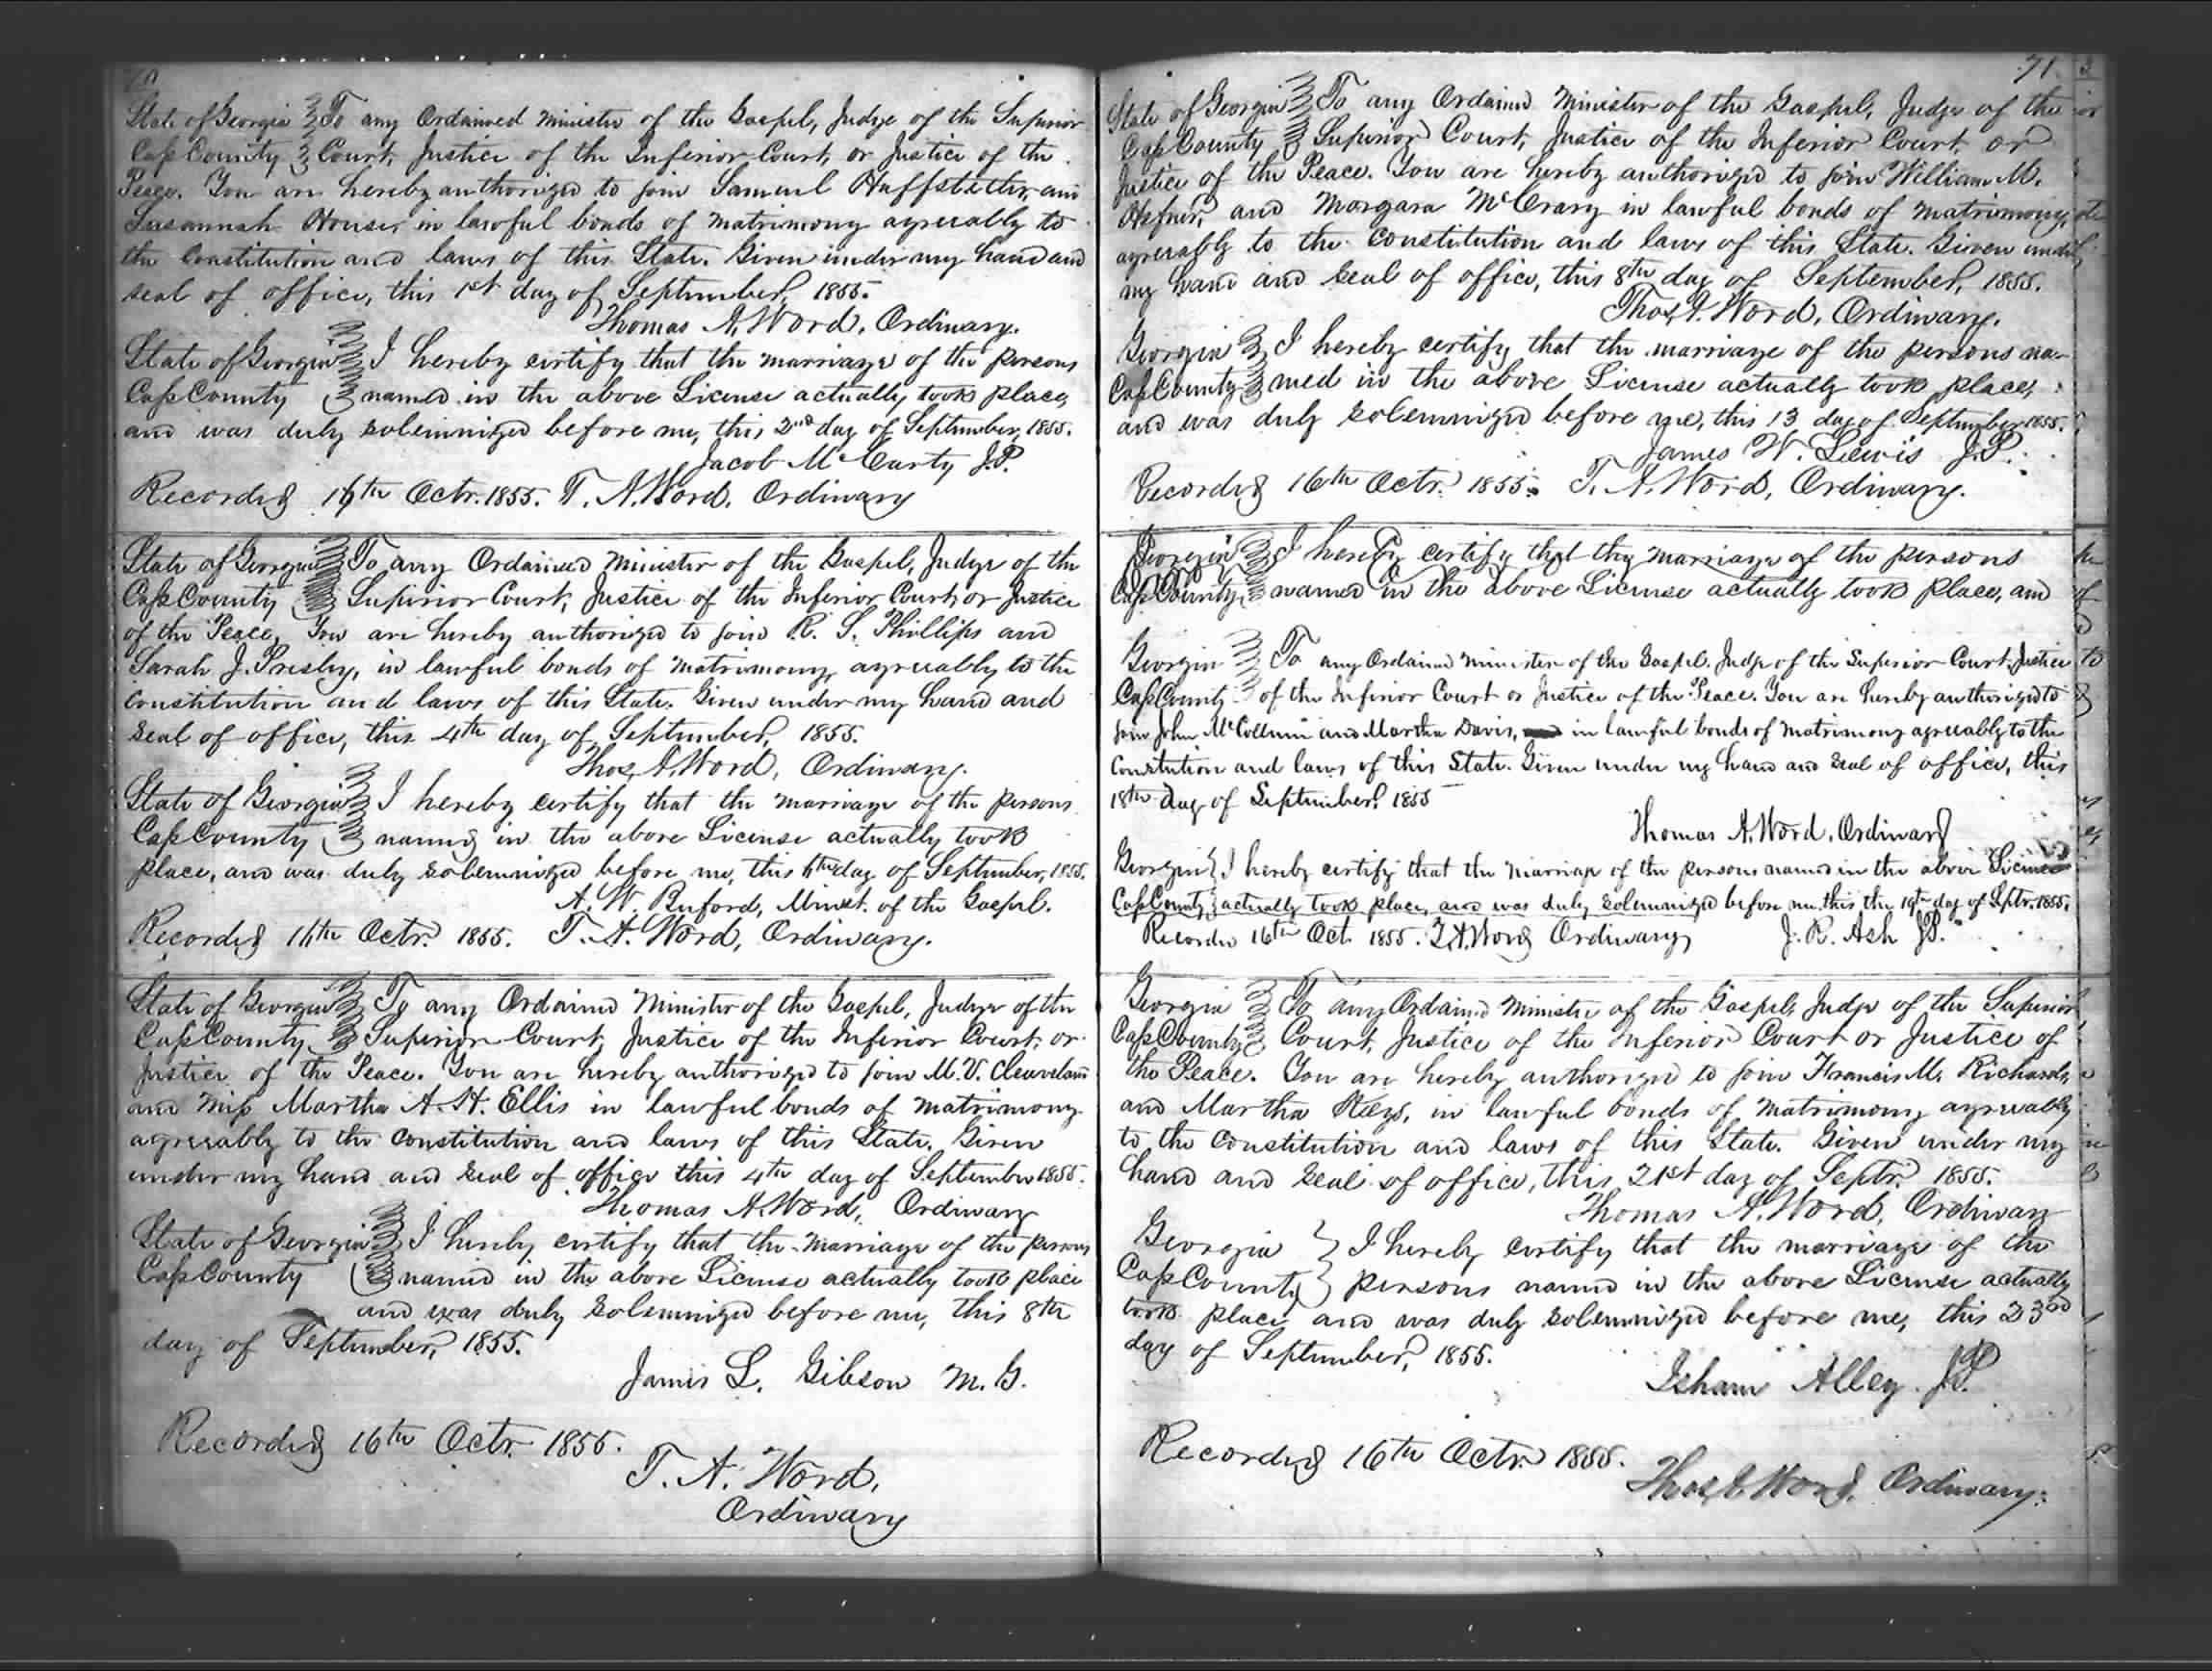 70
State of Georgia To any Ordained Minister of the Gospel, Judge of the Superior
Cass County Court, Justice of the Inferior Court, or Justice of the
Peace. You are hereby authorized to join Samuel Huffstetler, and
Susannah Houser, in lawful bonds of matrimony agreeably to
the Constitution and laws of this State. Given under my hand and
seal of office, this 1st day of September, 1855.
Thomas A. Word, Ordinary.
State of Georgia I hereby certify that the marriage of the persons
Cass County named in the above License actually took place,
and was duly solemnized before me, this 2nd day of September, 1855.
Jacob McCarty J.P.
Recorded 16th Octr. 1855. T. A. Word, Ordinary
State of Georgia To any Ordained Minister of the Gospel, Judge of the
Cass County Superior Court, Justice of the Inferior Court, or Justice
of the Peace, You are hereby authorized to join R. S. Phillips and
Sarah J. Presley, in lawful bonds of matrimony, agreeably to the
constitution and laws of this State. Given under my hand and
seal of office, this 4th day of September, 1855.
Thos. A. Word, Ordinary.
State of Georgia I hereby certify that the marriage of the persons
Cass County named in the above License actually took
place, and was duly solemnized before me, this 6th day of September, 1855.
A. W. Buford, Minst. of the Gospel.
Recorded 16th Octr. 1855. T. A. Word, Ordinary.
State of Georgia To any Ordained Minister of the Gospel, Judge of the
Cass County Superior Court, Justice of the Inferior Court, or
Justice of the Peace. You are hereby authorized to join M. V. Cleaveland
and Miss Martha A. H. Ellis in lawful bonds of matrimony
agreeably to the constitution and laws of this State. Given
under my hand and seal of office this 4th day of September 1855.
Thomas A. Word, Ordinary
State of Georgia I hereby certify that the marriage of the persons
Cass County named in the above License actually took place
and was duly solemnized before me, this 8th
day of September, 1855.
James L. Gibson M. G.
Recorded 16th Octr. 1855.
T. A. Word,
Ordinary
71
State of Georgia To any Ordained Minister of the Gospel, Judge of the
Cass County Superior Court, Justice of the Inferior Court, or
Justice of the Peace. You are hereby authorized to join William M.
Hefner, and Margara McCrary in lawful bonds of matrimony,
agreeably to the constitution and laws of this State. Given under
my hand and seal of office, this 8th day of September, 1855.
Thos. A. Word, Ordinary.
Georgia I hereby certify that the marriage of the persons na-
Cass County med in the above License actually took place,
and was duly solemnized before me, this 13 day of September 1855.
James W. Lewis J.P.
Recorded 16th Octr. 1855. T. A. Word, Ordinary.
Georgia I hereby certify that the marriage of the persons
Cass County, named in the above License actually took place, and
Georgia To any Ordained Minister of the Gospel. Judge of the Superior Court. Justice
Cass County of the Inferior Court or Justice of the Peace. You are hereby authorized to
join John McCollum and Martha Davis, in lawful bonds of matrimony agreeably to the
Constitution and laws of this State. Given under my hand and seal of office, this
18th day of September. 1855
Thomas A. Word, Ordinary
Georgia I hereby certify that the marriage of the persons named in the above License
Cass County actually took place, and was duly solemnized before me, this the 19th day of Septr. 1855.
Recorded 16th Oct. 1855. T. A. Word Ordinary, J. R. Ash J.P.
Georgia To any Ordained Minister of the Gospel, Judge of the Superior
Cass County Court, Justice of the Inferior Court or Justice of
the Peace. You are hereby authorized to join Francis M. Richards,
and Martha Keys, in lawful bonds of matrimony agreeably
to the constitution and laws of this State. Given under my
hand and seal of office, this 21st day of Septr. 1855.
Thomas A. Word, Ordinary
Georgia I hereby certify that the marriage of the
Cass County persons named in the above License actually
took place and was duly solemnized before me, this 23rd
day of September, 1855.
Isham Alley J.P.
Recorded 16th Octr. 1855.
Thos. A. Word, Ordinary.